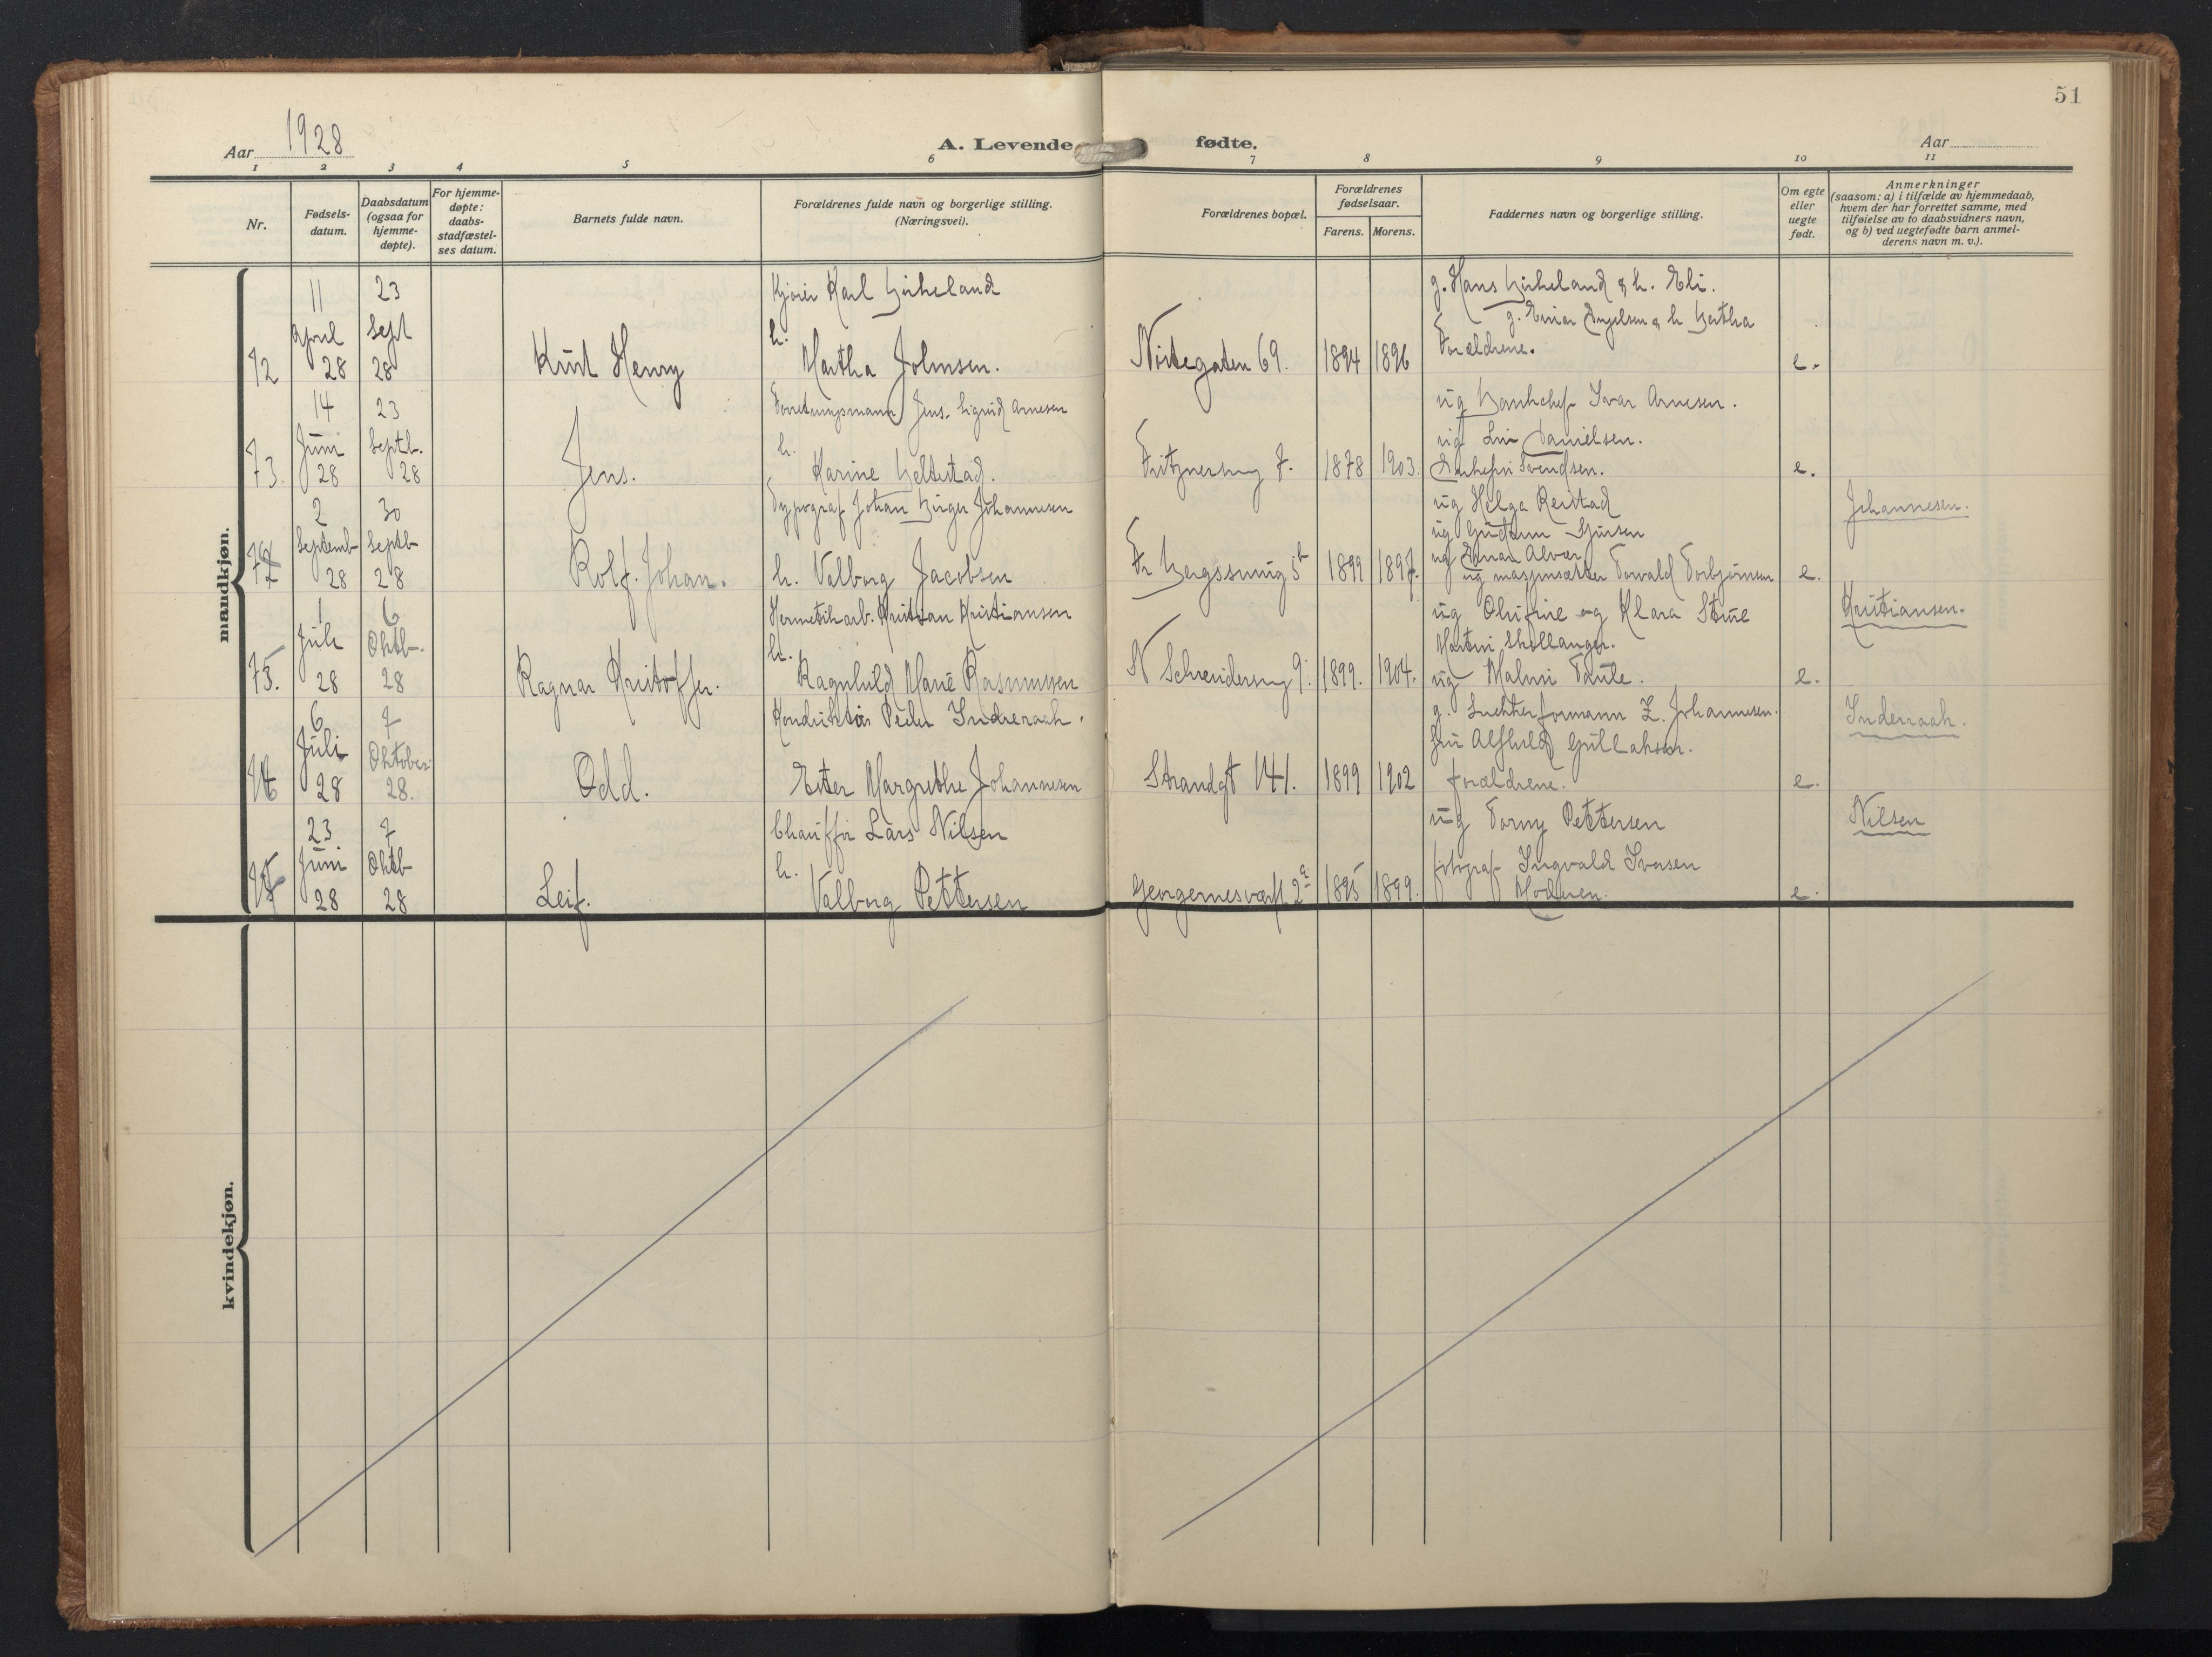 51
Aar 1928
A. Levende fødte.
Aar
1 2 3 4 5 6 7 8 9 10 11
Nr.
Fødsels-
datum.
Daabsdatum
(ogsaa for
hjemme-
døpte).
For hjemme-
døpte:
daabs-
stadfæstel-
ses datum.
Barnets fulde navn.
Forældrenes fulde navn og borgerlige stilling.
(Næringsvei).
Forældrenes bopæl.
Forældrenes
fødselsaar.
Farens. Morens.
Faddernes navn og borgerlige stilling.
Om egte
eller
uegte
født.
Anmerkninger
(saasom: a) i tilfælde av hjemmedaab,
hvem der har forrettet samme, med
tilføielse av to daabsvidners navn,
og b) ved uegtefødte barn anmel-
derens navn m. v.).
mandkjøn.
72
11
april
28
23
Sept
28
Kurt Henry
Karl Birkeland
h.
Martha Johnsen.
Nöstegaten 69.
1894
1896
g. Hans Birkeland & h. Eli.
g. Einar Engelsen & h Bertha
Forældrene.
e.
73.
14
Juni
28
23
Septb.
28
Jens.
Forretningsmann Jens. Sigurd Arnesen
h.
Karine
7.
1878
1903.
ug Bankchef Ivar Arnesen.
ug Danielsen.
Svendsen.
e.
2
Septemb
28
30
Septb
28
Rolf. Johan.
Typograf Johan Birger Johannesen
h. Valborg Jacobsen
5b
1899
1897.
ug Helga Reistad
ug Gudrun
ug Einar Alver
ug Torvald Torbjörnsen
e.
Johannesen.
75.
1
Juli
28
6
Oktb.
28
Ragnar Kristoffer.
Hermetikarb. Kristian Kristiansen
h.
Ragnhild Marie Rasmussen
9.
1899.
1904.
ug og Klara
Skollanger.
ug
e.
Kristiansen.
6
Juli
28
7
Oktober
28.
Odd.
Konduktör Peder Indreraak.
Ester Margrethe Johannesen
Strandgt 141.
1899
1902
g. formann Z. Johannesen.
fru Alfhild Gullaksen.
forældrene.
e.
Inderaak.
23
Juni
28
7
Oktb
28
Leif.
Chauffør Lars Nilsen
h.
Valborg Pettersen
Georgernesverft 2a
1895
1899.
ug Torny Pettersen
fotograf Ingvald Iversen
Moderen.
e.
Nilsen
kvindekjøn.